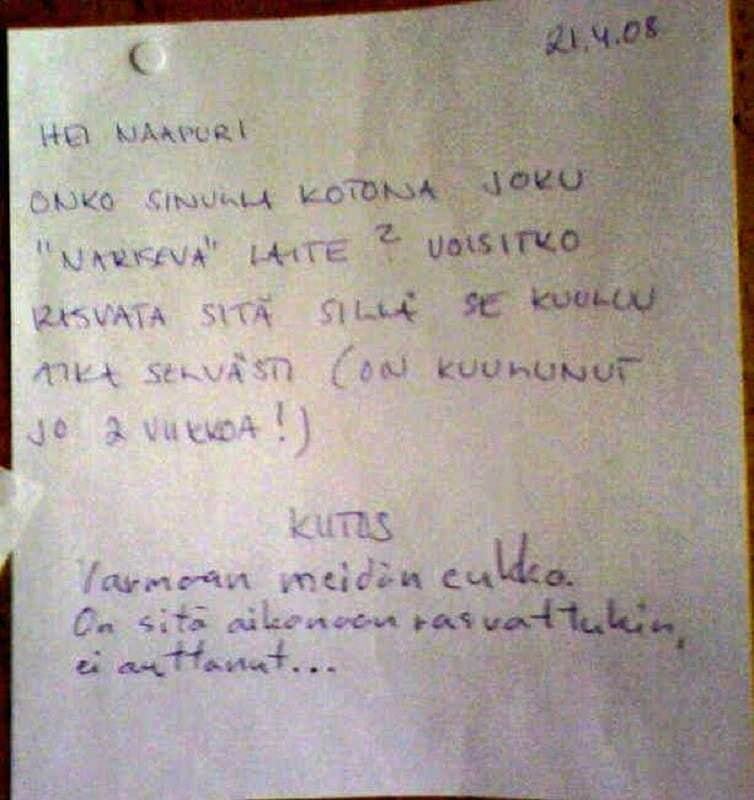 21.4.08
HEI NAAPURI
ONKO SINULLA KOTONA JOKU
"NARISEVA" LAITE? VOISITKO
RASVATA SITÄ SILLÄ SE KUULUU
AIKA SELVÄSTI (ON KUULUNUT
JO 2 VIIKKOA!)
KIITOS
Varmaan meidän eukko.
On sitä aikanaan rasvattukin,
ei auttanut...